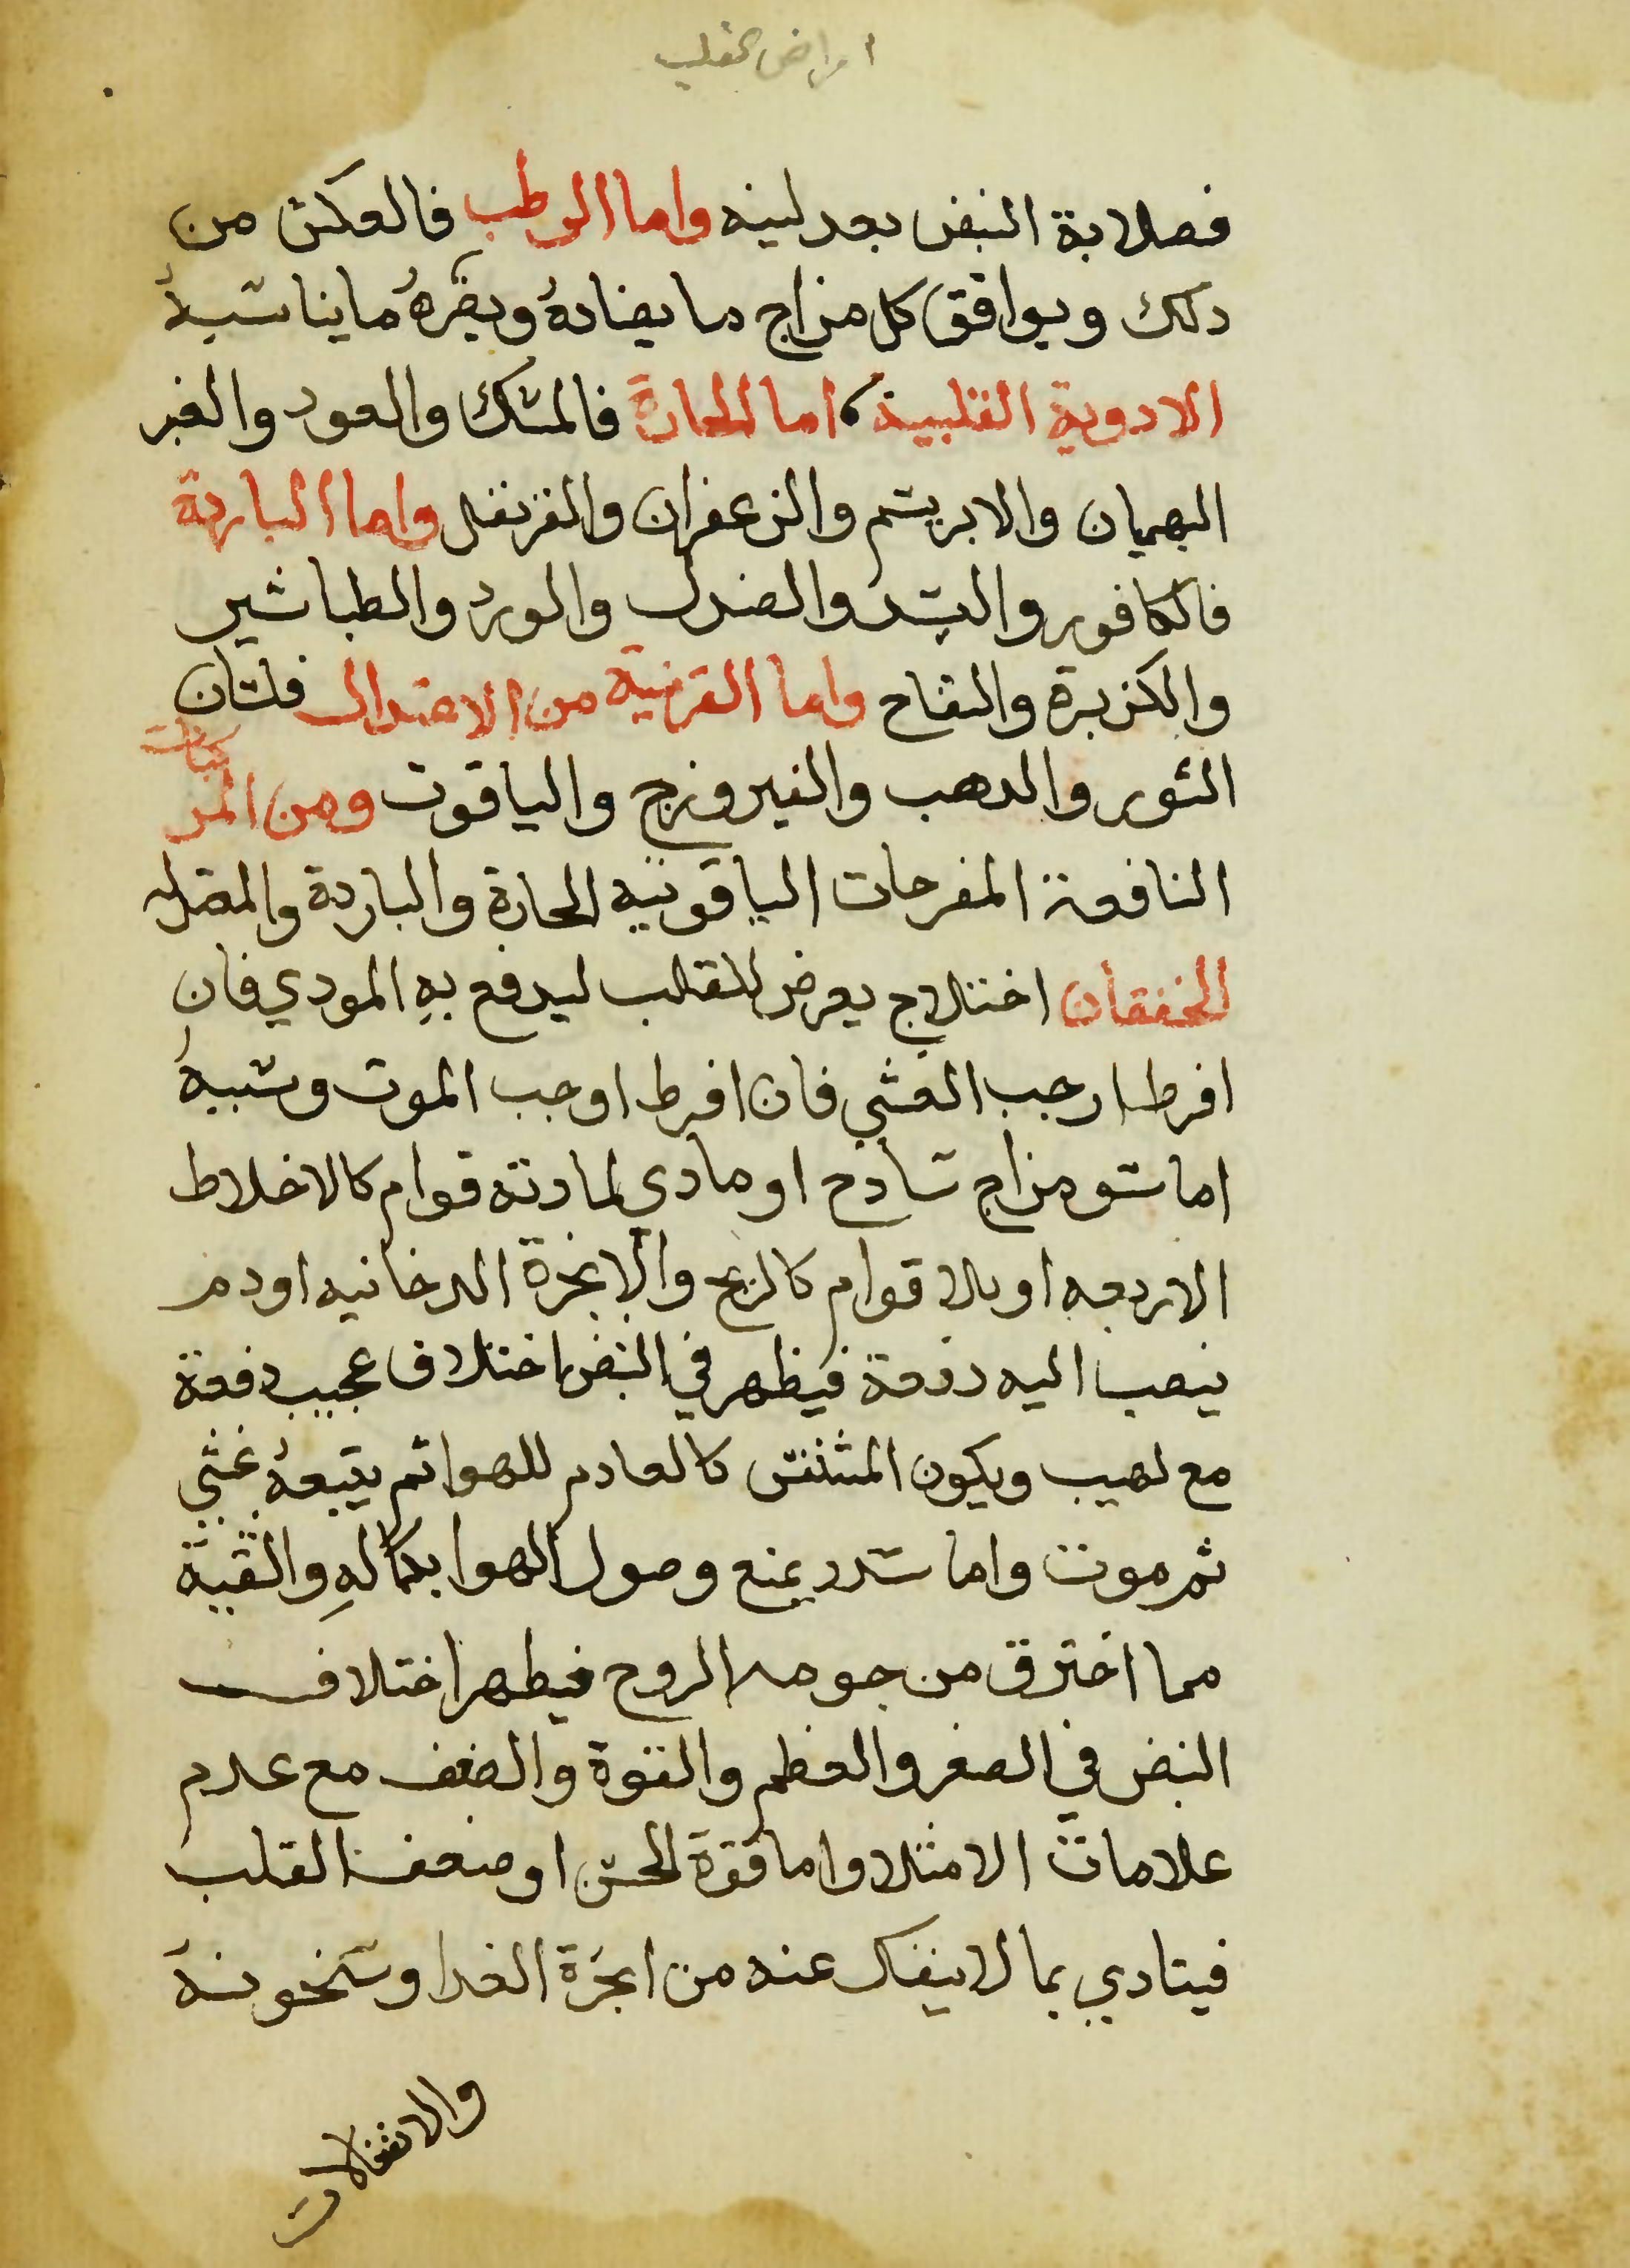 امراض القلب
فصلابة النبض بعد لينه واما الرطب فالعكس من
ذلك ويوافق كل مزاج ما يضادهُ ويضرهُ ما يناسبهُ
الادوية القلبية، اما الحارة فالمسك والعود والعنبر
البهمان والابريسم والزعفران والقرنفل واما الباردة
فالكافور والبسد والصندل والورد والطباشير
والكزبرة والتفاح واما القريبة من الاعتدال فلسان
الثور والدهب والفيروزج والياقوت ومن المركبات
النافعة المفرحات الياقوتية الحارة والباردة والمعتدله
الخفقان اختلاج يعرض للقلب ليدفع بهِ المودي فان
افرط اوجب الغشي فان افرط اوجب الموت وسببهُ
اما سو مزاج سادج او مادي لمادته قوام كالاخلاط
الاربعه او بلا قوام كالريح والابخرة الدخانيه او دم
ينصب اليه دفعة فيظهر في النبض اختلاف عجيب دفعة
مع لهيب ويكون المتنفس كالعادم للهوا ثم يتبعهُ غشي
ثم موت واما سدد يمنع وصول الهوا بكمالهِ والتقبية
مما اخترق من جوهر الروح فيظهر اختلاف
النبض في الصغر والعظم والقوة والضعف مع عدم
علامات الامتلا واما قوة الحس او ضعف القلب
فيتادي بما لا ينفك عنه من ابخرة الغدا وسخونة
والانفعالات